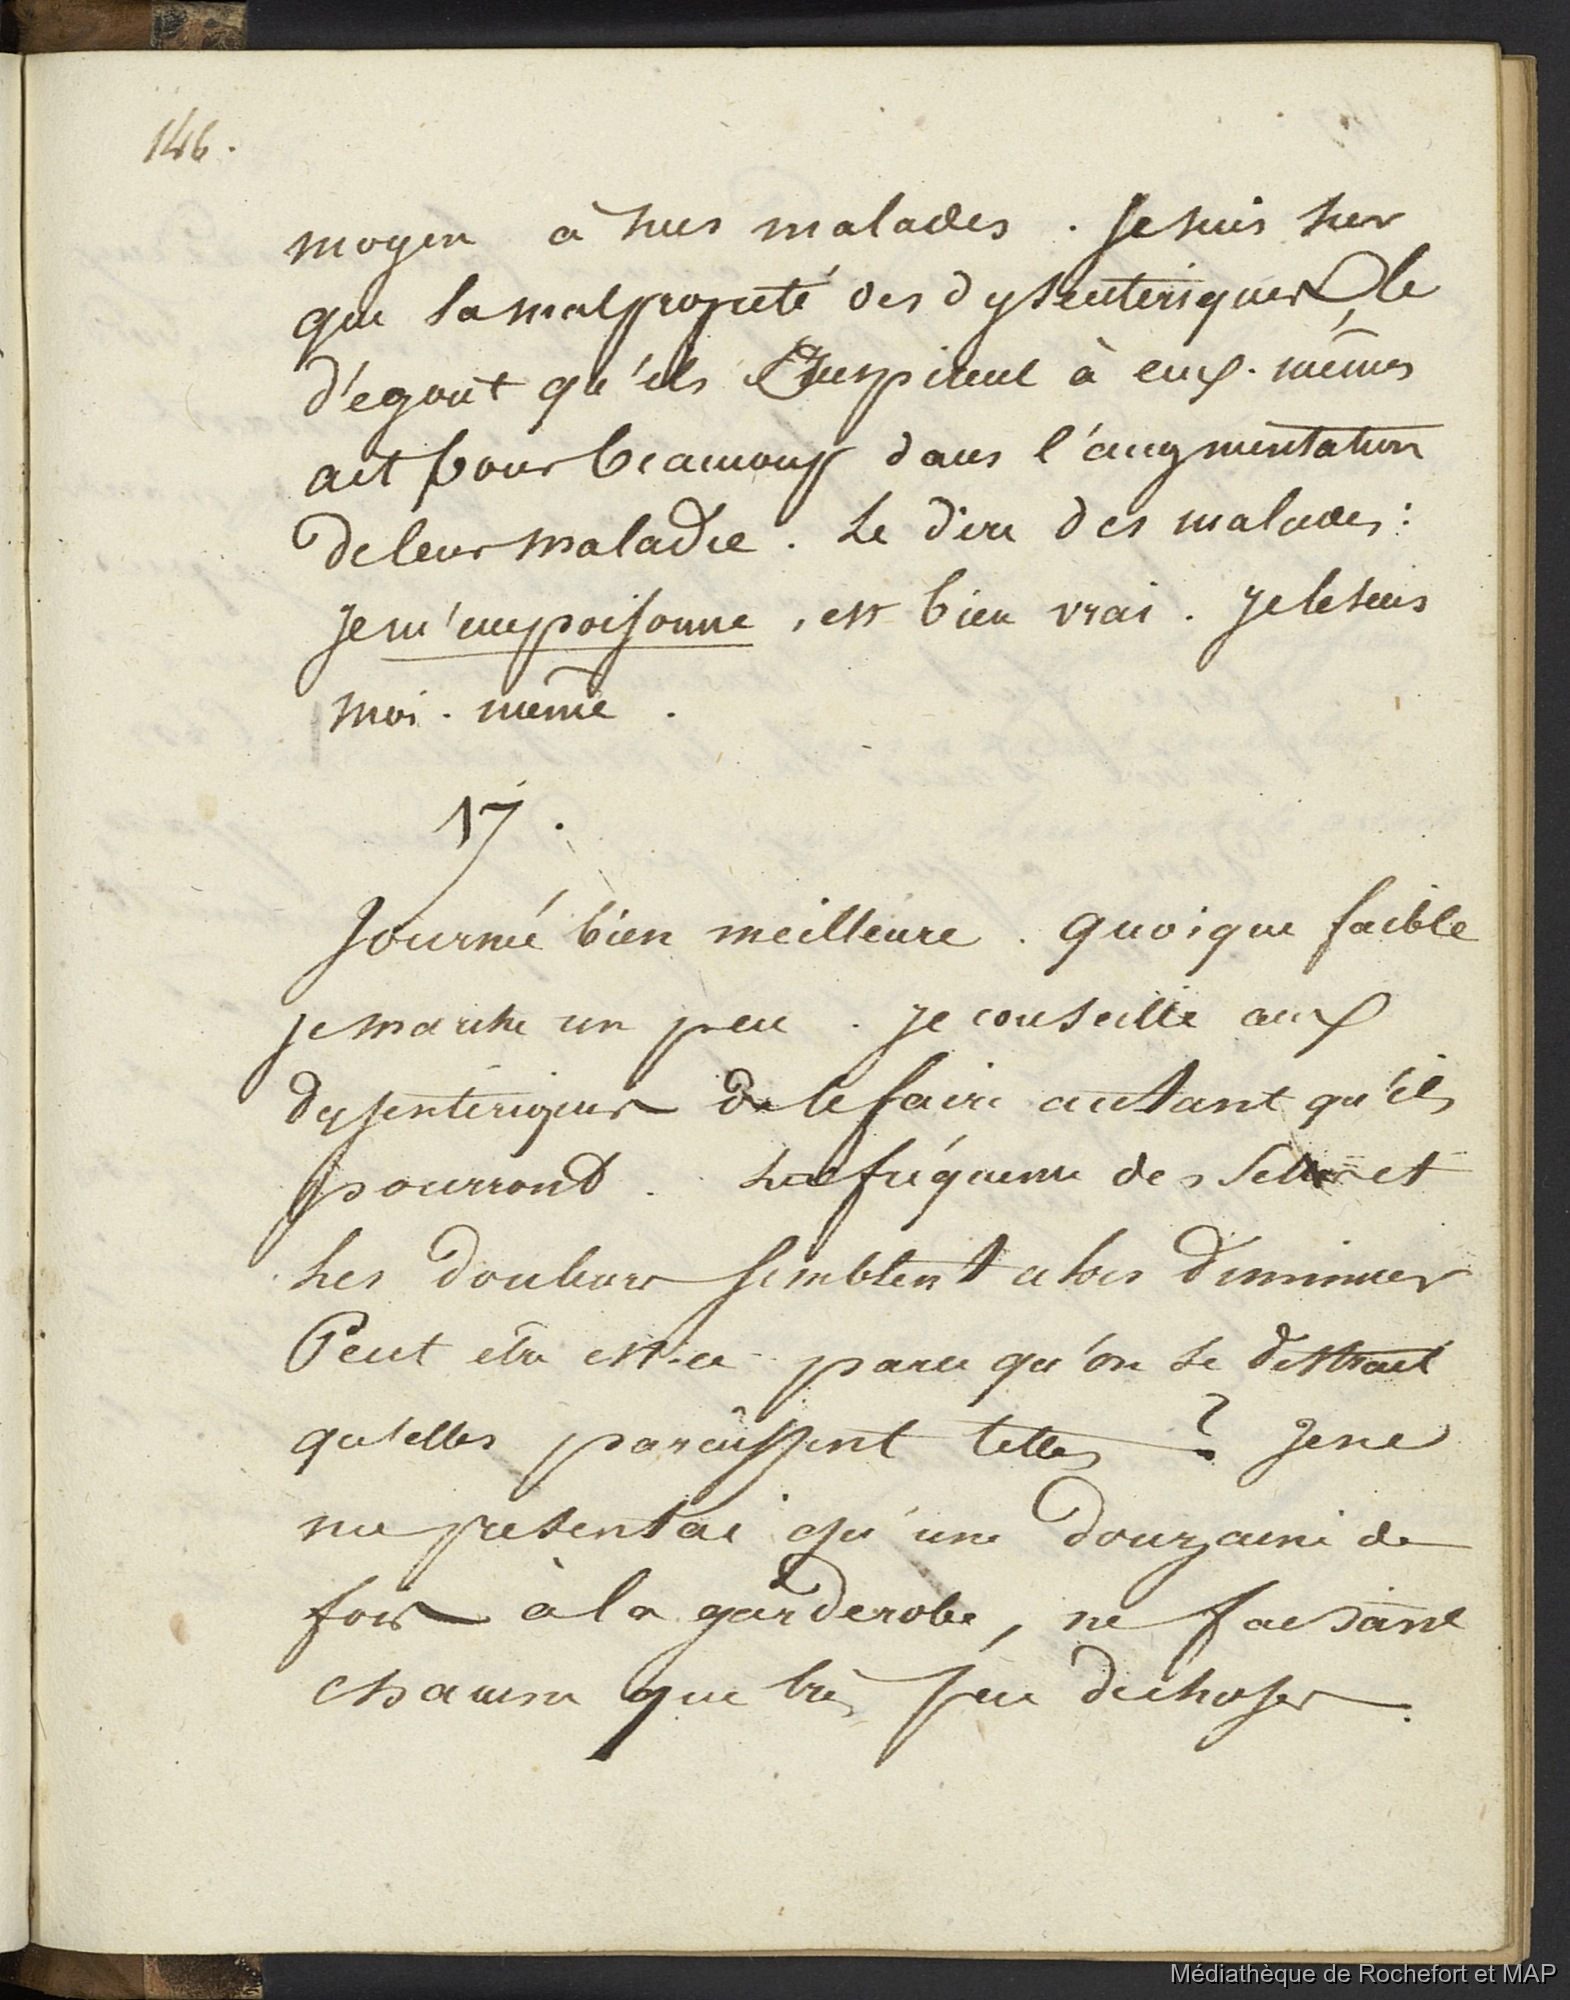 146.
moyen à nos malades. Je suis sur
que la malpropreté des dyssenteriques, le
d'egout qu'ils Inspirent à eux-mêmes
ait pour beaucoup dans l'augmentation
de leur maladie. Le dire des malades:
Je m'empoisonne, est bien vrai. Je le suis
moi-même.
17.
Journée bien meilleure. quoique faible
je marche un peu. je conseille aux
dyssenteriques de le faire autant qu'ils
pourront. La fréquence des selles et
les douleurs semblent alors diminuer
Peut etre est-ce parce qu'on se distrait
qu'elles paraissent telles? Je ne
me presentai qu'une douzaine de
fois à la garderobe, ne faisant
chacune que très peu de choses.
Médiathèque de Rochefort et MAP